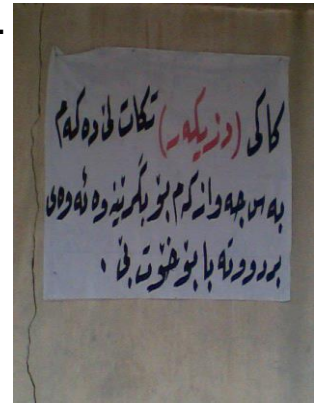 کاکی (دزیکەر) تکات لێ دەکەم
بەس جەوازکەم بۆ بگرێنەوە ئەوەی
بردووتە با بۆ خۆت بێ .